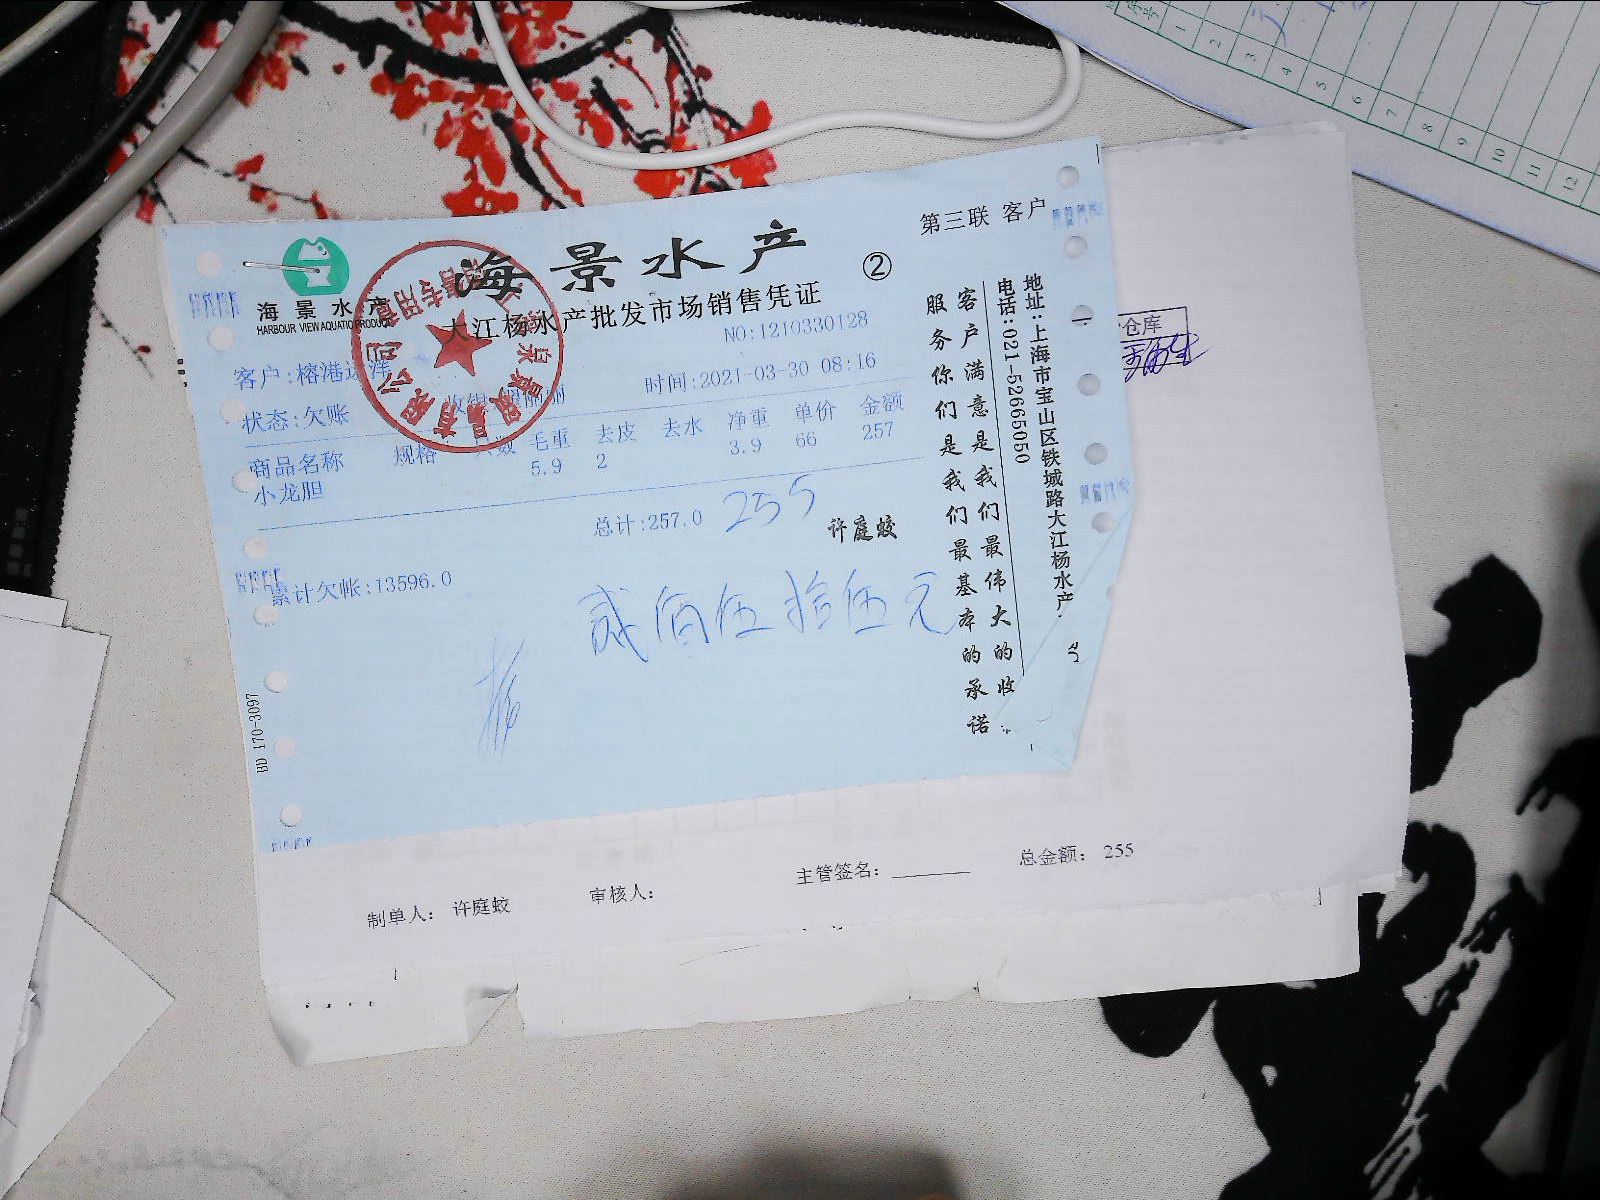 第三联 客户
海景水产
②
海景水产
HARBOUR VIEW AQUATIC PRODUCT
大江杨水产批发市场销售凭证
NO:1210330128
客户:榕港远洋
时间:2021-03-30 08:16
状态:欠账
商品名称 规格 只数 毛重 去皮 去水 净重 单价 金额
小龙胆 5.9 2 3.9 66 257
总计:257.0
255
许庭蛟
累计欠帐:13596.0
贰佰伍拾伍元
地址:上海市宝山区铁城路大江杨水产.
电话:021-52665050
客户满意是我们最伟大的收
服务你们是我们最基本的承诺
BD 170-3097
仓库
制单人: 许庭蛟
审核人:
主管签名:
总金额: 255
序号
1
2
3
4
5
6
7
8
9
10
11
12